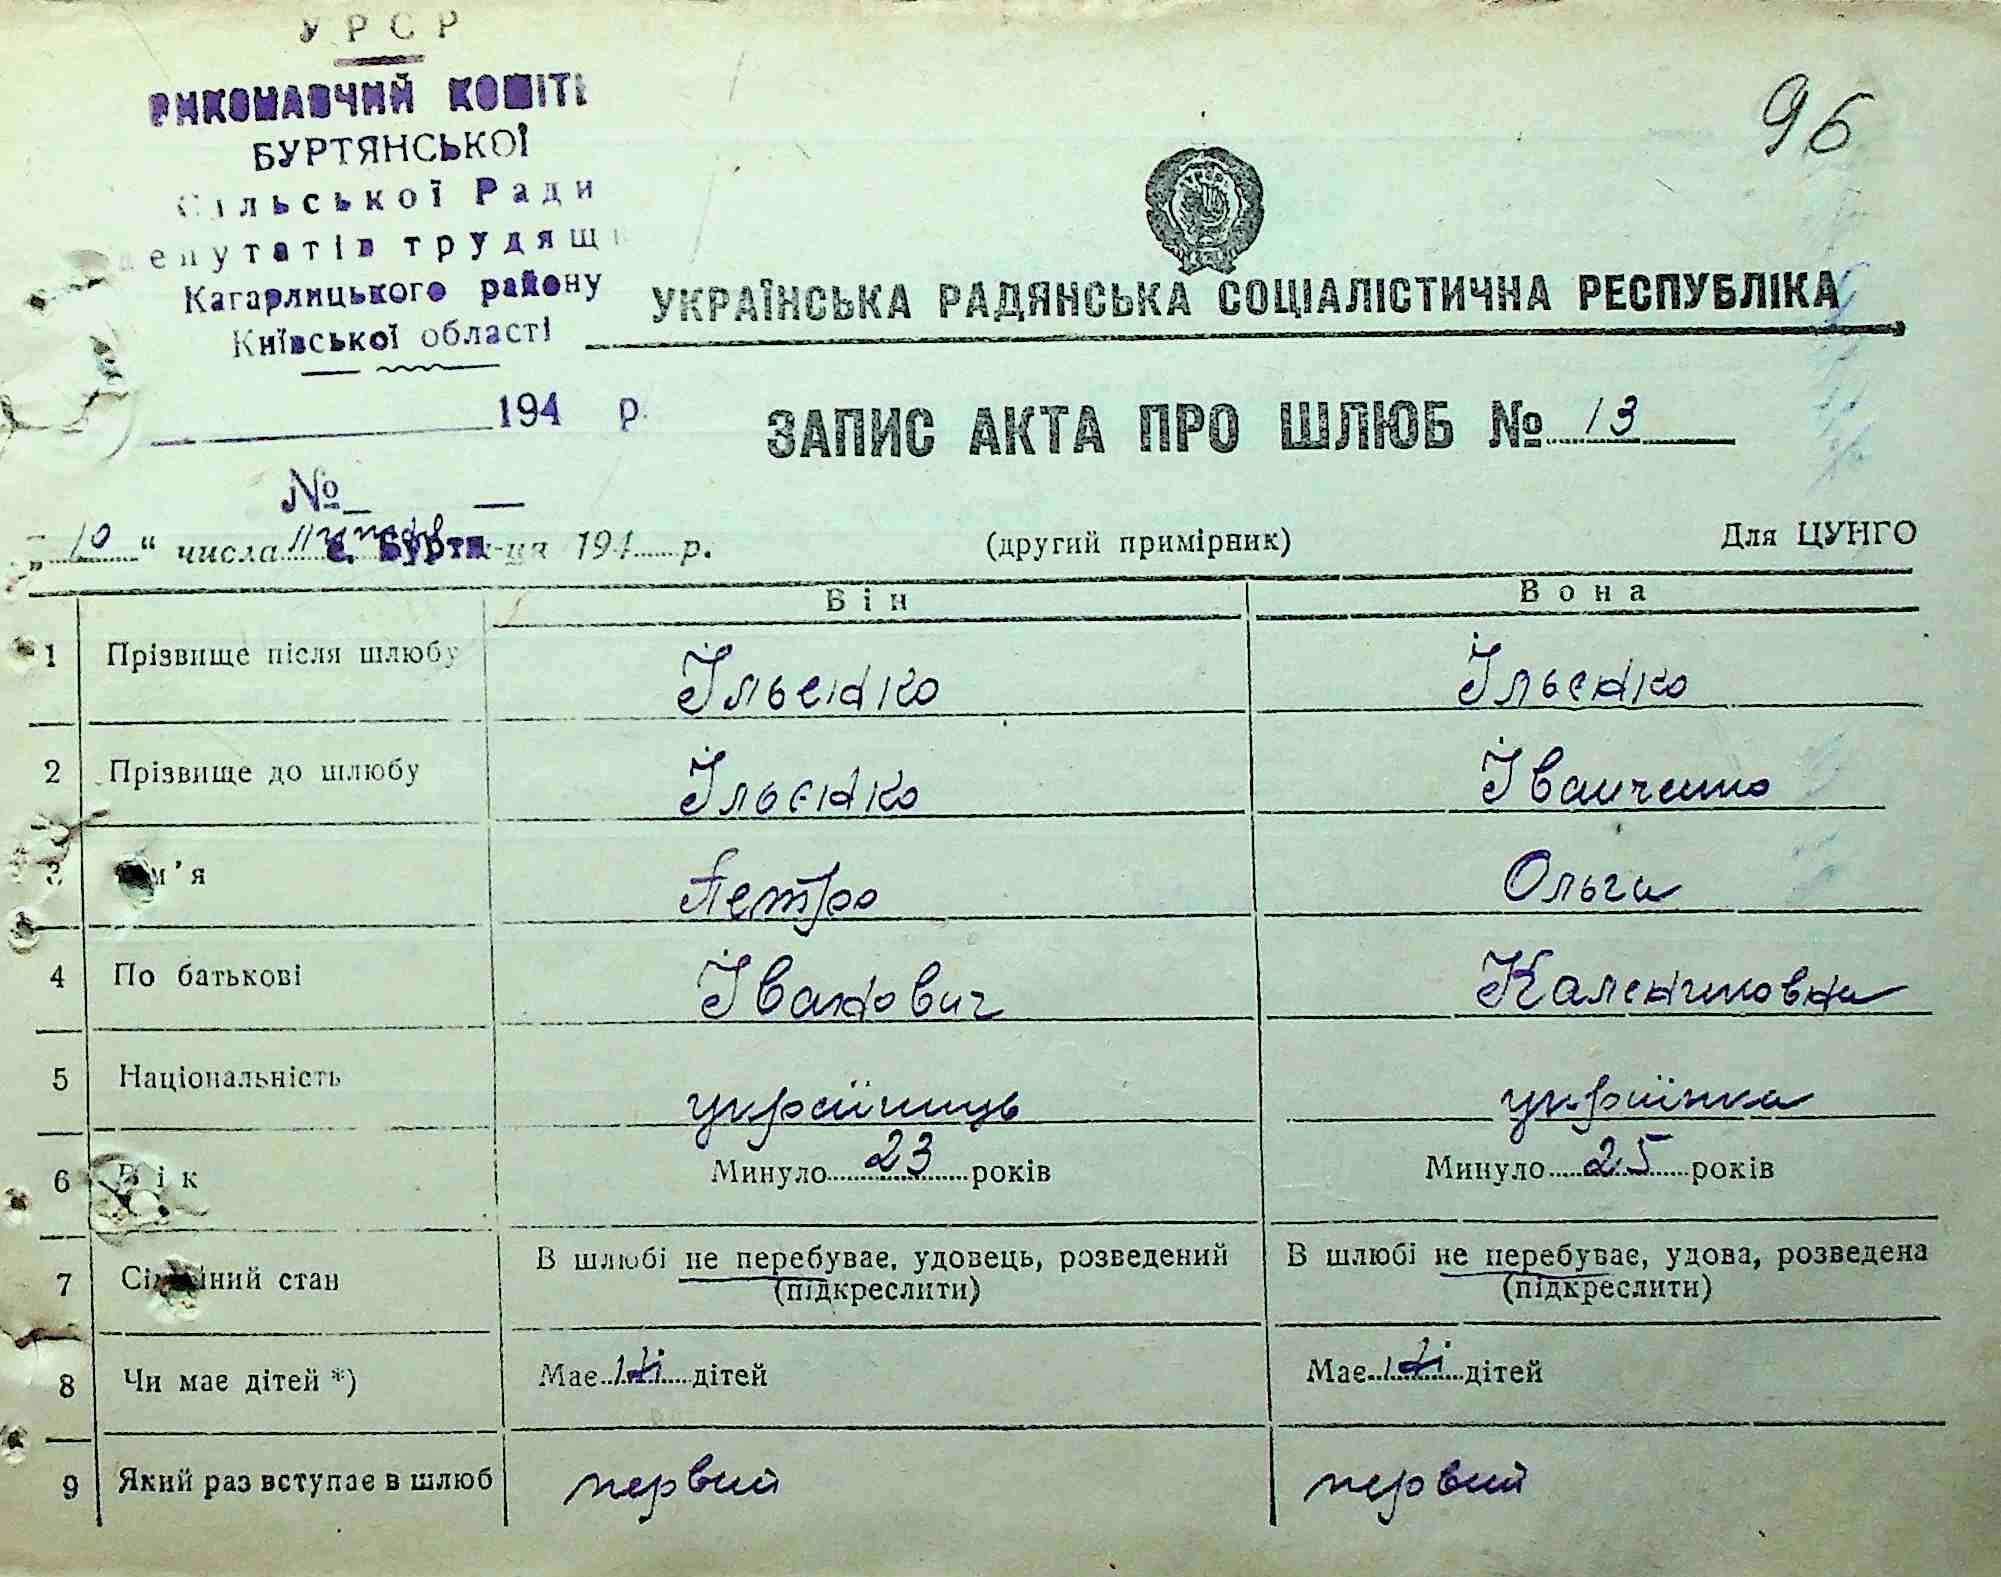 УРСР
ВИКОНАВЧИЙ КОМІТЕ
БУРТЯНСЬКОЇ
Сільської Ради
депутатів трудящ
Кагарлицького району
Київської області
194 р.
№
96
УКРАЇНСЬКА РАДЯНСЬКА СОЦІАЛІСТИЧНА РЕСПУБЛІКА
ЗАПИС АКТА ПРО ШЛЮБ № 13
„10“ числа с. Бурти м-ця 194 р. (другий примірник) Для ЦУНГО
Він Вона
1 Прізвище після шлюбу Ільєнко Ільєнко
2 Прізвище до шлюбу Ільєнко Іванченко
3 Ім'я Петро Ольга
4 По батькові Іванович Калениковна
5 Національність українець українка
6 Вік Минуло 23 років Минуло 25 років
7 Сімейний стан В шлюбі не перебуває, удовець, розведений В шлюбі не перебуває, удова, розведена
(підкреслити) (підкреслити)
8 Чи має дітей *) Має ні дітей Має ні дітей
9 Який раз вступає в шлюб первий первий